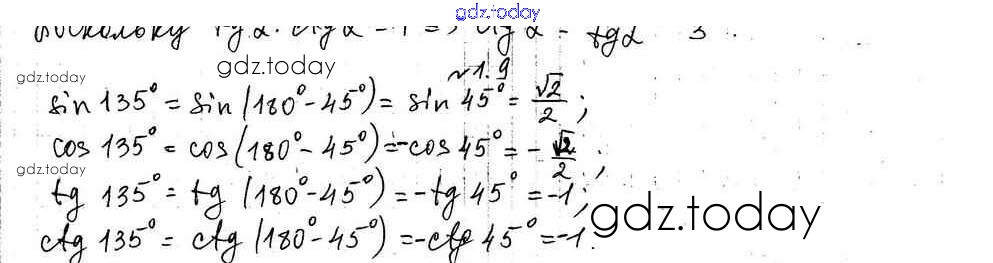 gdz.today
Поскольку tg α · ctg α = 1 ⇒ ctg α =
gdz.today gdz.today
№1.9
sin 135° = sin(180° - 45°) = sin 45° = √2/2;
cos 135° = cos(180° - 45°) = -cos 45° = -√2/2;
gdz.today
tg 135° = tg (180° - 45°) = -tg 45° = -1;
gdz.today
ctg 135° = ctg (180° - 45°) = -ctg 45° = -1.